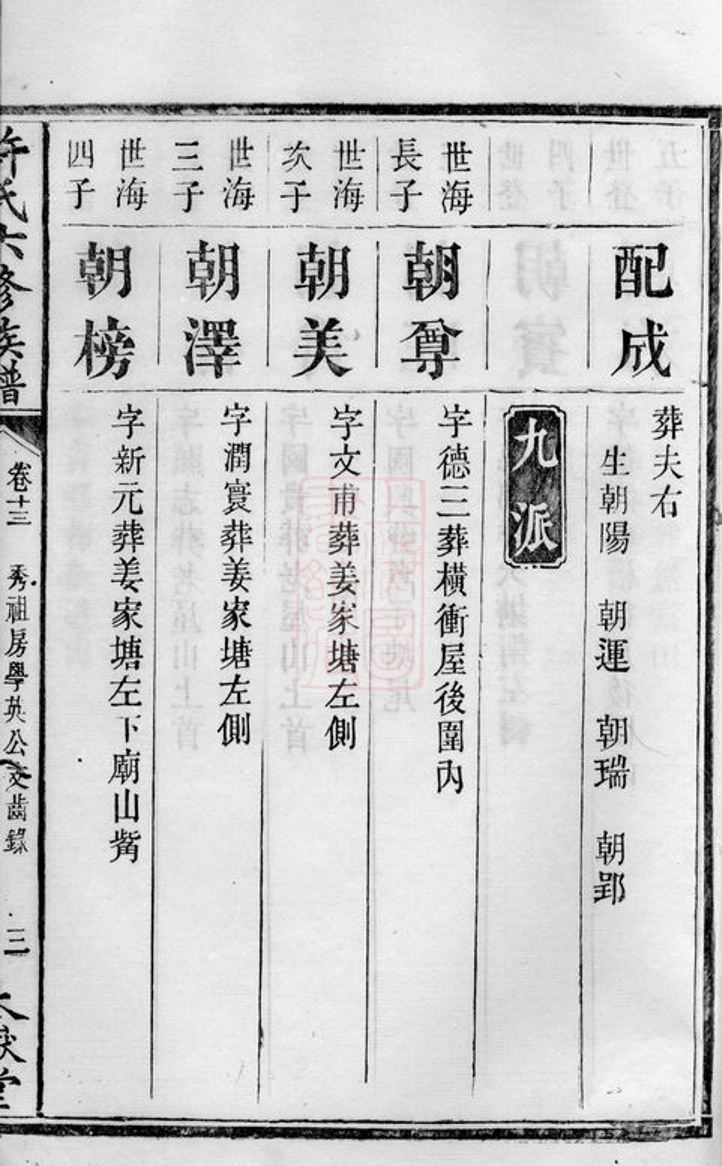 配成
葬夫右
生朝陽 朝運 朝瑞 朝郢
九派
世海
長子
朝尊
字德三葬橫衝屋後圍內
世海
次子
朝美
字文甫葬姜家塘左側
世海
三子
朝澤
字潤寰葬姜家塘左側
世海
四子
朝榜
字新元葬姜家塘左下廟山觜
許氏六修族譜
卷十三
秀祖房學英公支齒錄
三